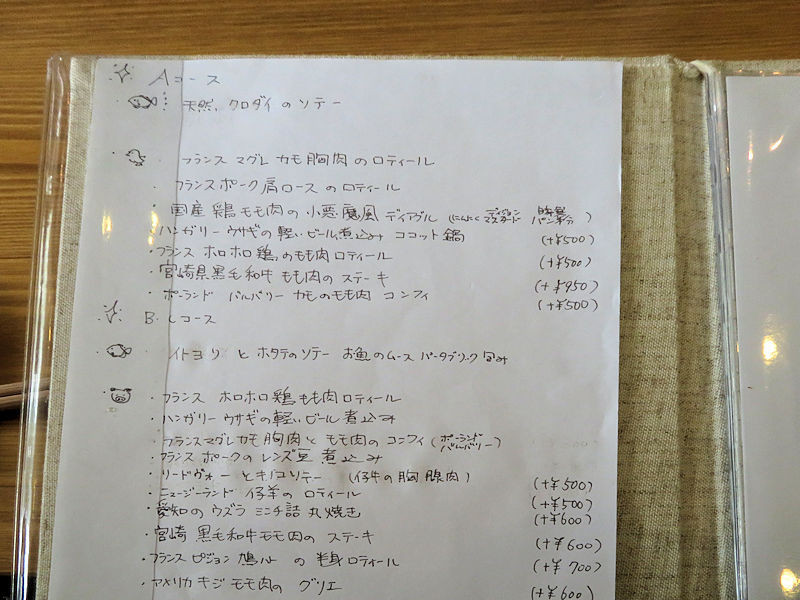 Aコース
天然 クロダイのソテー
フランス マグレ カモ胸肉のロティール
フランスポーク肩ロースのロティール
国産鶏モモ肉の小悪魔風 ディアブル (にんにく ディジョンマスタード 香草パン粉)
ハンガリーウサギの軽いビール煮込み ココット鍋 (+¥500)
フランス ホロホロ鶏のもも肉ロティール (+¥500)
宮崎県黒毛和牛もも肉のステーキ (+¥950)
ポーランド バルバリーカモのもも肉 コンフィ (+¥500)
B.Cコース
イトヨリとホタテのソテー お魚のムース パータブリック包み
フランス ホロホロ鶏もも肉ロティール
ハンガリーウサギの軽いビール煮込み
フランスマグレカモ胸肉ともも肉のコンフィ(ポーランドバルバリー)
フランスポークのレンズ豆煮込み
リードヴォーとキノコソテー (仔牛の胸腺肉) (+¥500)
ニュージーランド 仔羊のロティール (+¥500)
愛知のウズラ ミンチ詰 丸焼き (+¥600)
宮崎黒毛和牛モモ肉のステーキ (+¥600)
フランスピジョン 鳩 の半身ロティール (+¥700)
アメリカキジモモ肉の グリエ (+¥600)